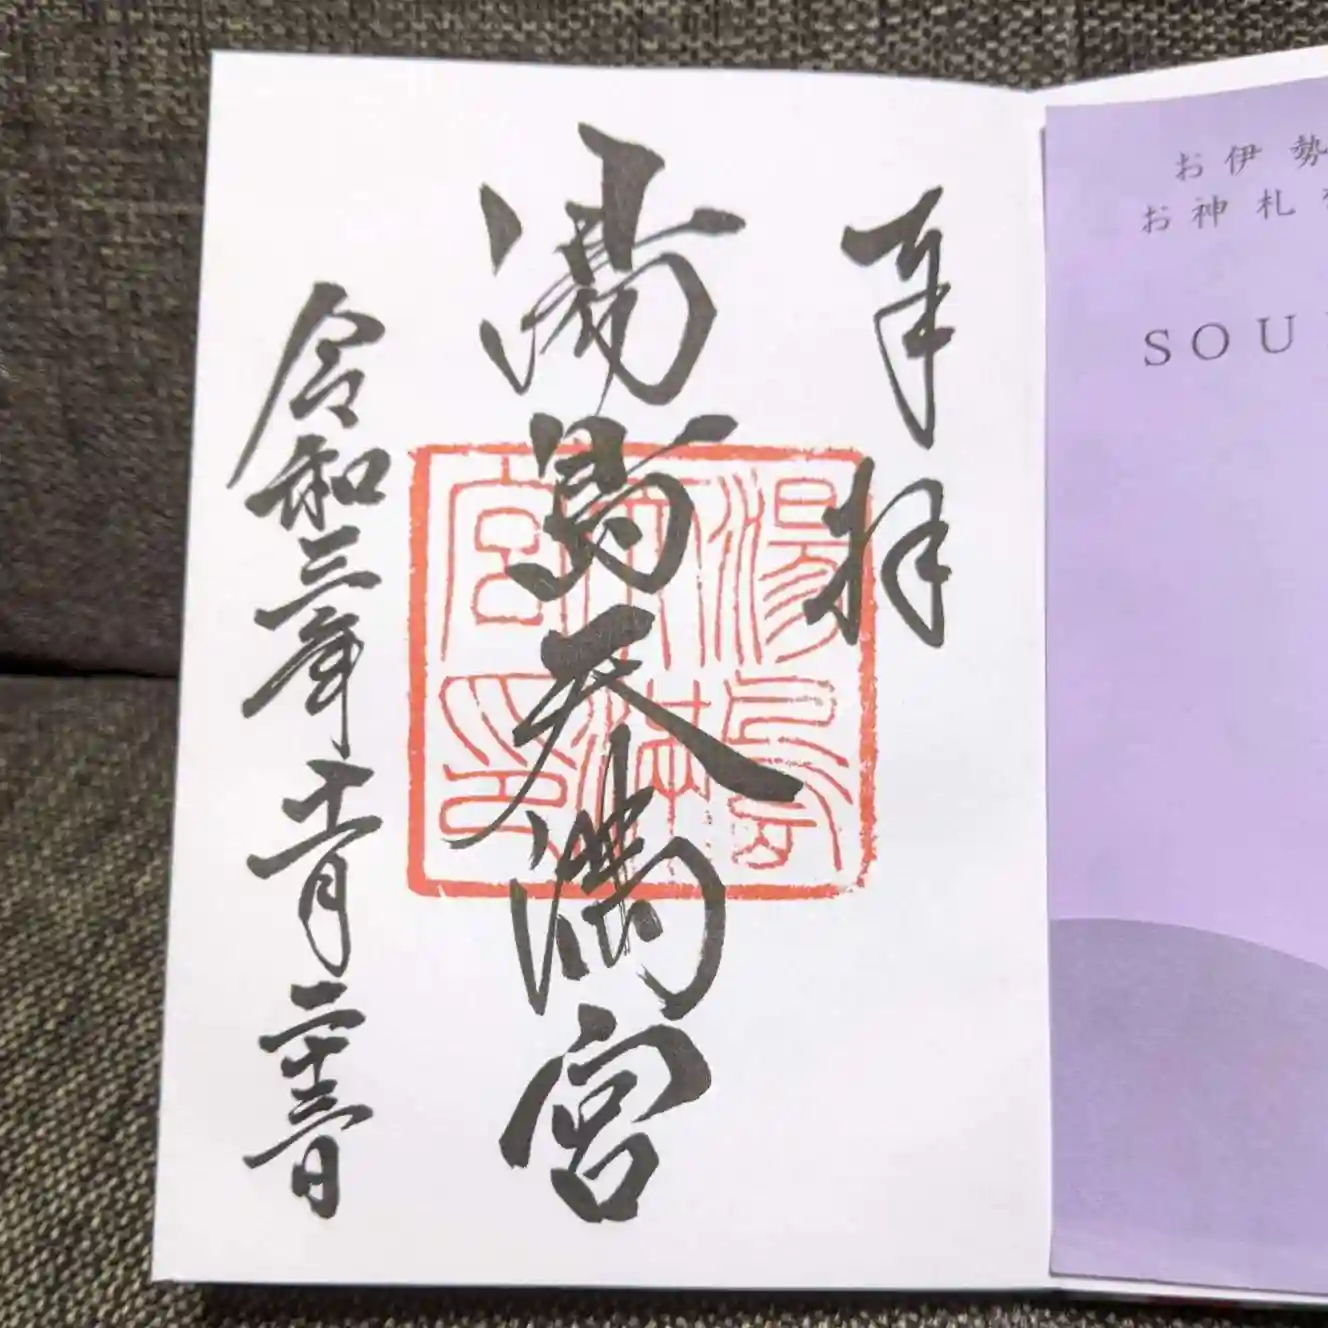 奉拝
湯島天満宮
湯島天満宮印
令和三年十一月二十三日
お伊勢
お神札
SOU